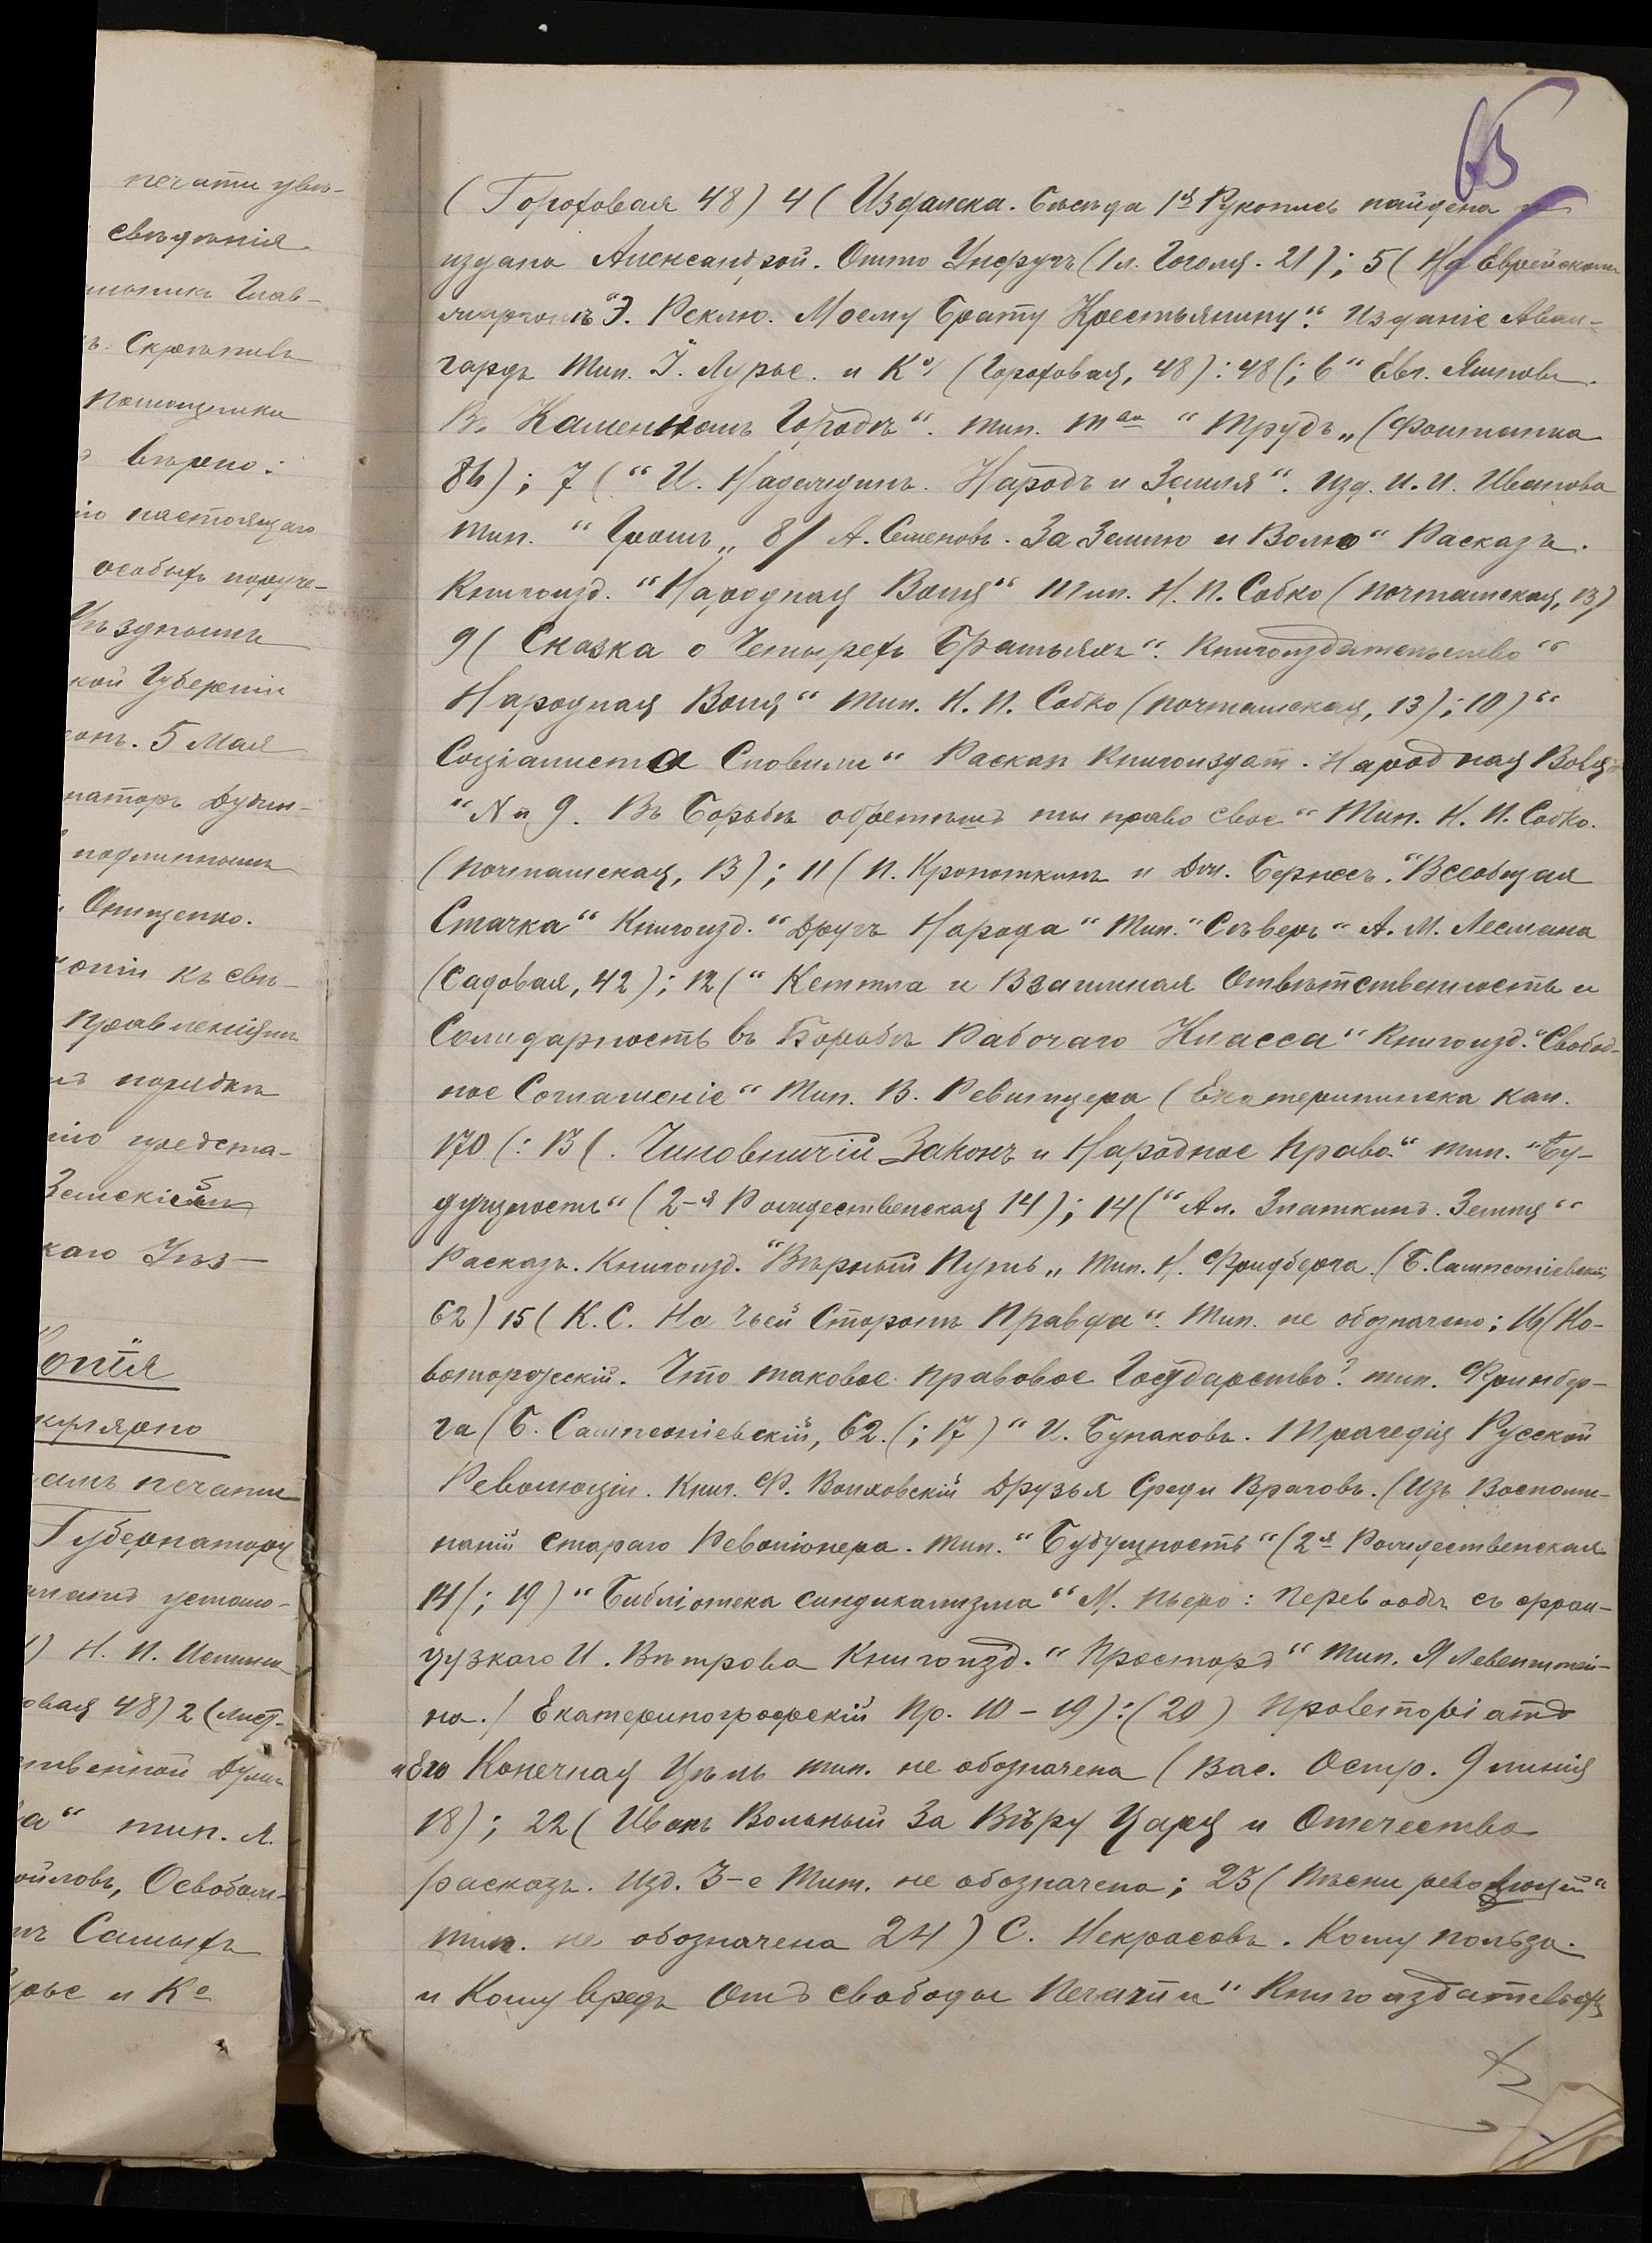 печати увѣ-
свѣдѣнія.
Глав-
Скрѣпивъ
помощника
вѣрно:
настоящаго
особыхъ поруче-
Уѣзднымъ
кой Губерніи
5 Мая
наторъ Дубин-
подлиннымъ
Онищенко.
копіи къ свѣ-
порядкѣ
предста-
Земскій
каго Уѣз-
Копія
кулярно
амъ печати
Губернатору
устано-
1) Н. П.
овая 48) 2 (Лист-
ственной Думы
ва“ тип. Л.
ойловъ, Освобож-
Самыхъ
урье и К°
65
(Гороховая 48) 4 ( Издалека. Бесѣда 1я Рукопись найдена и
издана Александрой. Отто Унфугъ (Ул. Гоголя. 21); 5 ( На Еврейскомъ
жаргонѣ“ Э. Реклю. Моему Брату Крестьянину“. Изданіе Аван-
гардъ Тип. Я. Лурье. и К° (Гороховая, 48): 48(; 6 “ Евг. Яшновъ.
Въ Каменномъ Городѣ“. тип. Тва “ Трудъ „ (Фонтанка
86); 7 ( “ И. Надеждинъ. Народъ и Земля“. Изд. И. И. Иванова
тип. “ Грошъ „ 8/ А. Семеновъ. За Землю и Волю“ Расказъ.
Книгоизд. “Народная Воля“ Тип. Н. П. Собко (Почтамская, 13)
9 ( Сказка о Четырехъ Братьяхъ“. Книгоиздательство “
Народная Воля“ Тип. Н. П. Собко (Почтамская, 13); 10) “
Соціалиста Словили“ Раскап Книгоиздат. Народная Воля
“ № 9. Въ Борьбѣ обретешь ты право свое“ Тип. Н. П. Собко.
(Почтамская, 13); 11 ( П. Кропоткинъ и Дж. Бернсъ. “Всеобщая
Стачка“ Книгоизд. “Другъ Народа“ Тип. “Сѣверъ“ А. М. Лесмана
(Садовая, 42); 12 ( “ Кеттла и Взаимная Отвѣтственность и
Солидарность въ Борьбѣ Рабочаго Класса“ Книгоизд. “Свобод-
ное Соглашеніе“ Тип. В. Ревитцера (Екатерининска кан.
170 (: 13 (. Чиновничій Законъ и Народное Право“ тип. “Бу-
дущность“ (2-я Рождественская 14); 14 ( “ Ал. Златкинъ. Земля“
Расказъ. Книгоизд. “Вѣрный Путь „ Тип. Н. Фридберга. (Б. Сампсоніевскій
62) 15 ( К. С. На Чьей Сторонѣ Правда“. Тип. не обозначено; 16 ( Но-
воторжскій. Что таковое правовое Государство? тип. Фридбер-
га (Б. Сампсоніевскій, 62. (; 17) “ И. Бунаковъ. Трагедія Русской
Революціи. Книг. Ф. Волховскій Друзья Среди Враговъ. (Изъ Воспоми-
наній стараго Револіонера. Тип. “ Будущность “ (2я Рождественская
14 (; 19) “ Библіотека синдикализма “ М. Пьеро: Переводъ съ фран-
цузкаго И. Вѣтрова Книгоизд. “ Просторъ “ Тип. Я Левенштей-
на. / Екатерингофскій Пр. 10 - 19): (20) Пролеторіатъ
и его Конечная Цѣль тип. не обозначена (Вас. Остр. 9 линія
18); 22 ( Иванъ Вольный За Вѣру Царя и Отечество
расказъ. Изд. 3-е Тип. не обозначено; 23 ( Пѣсни революцій“
тип. не обозначена 24) С. Некрасовъ. Кому польза.
и Кому вредъ Отъ свободы Печати“ Книгоиздательств